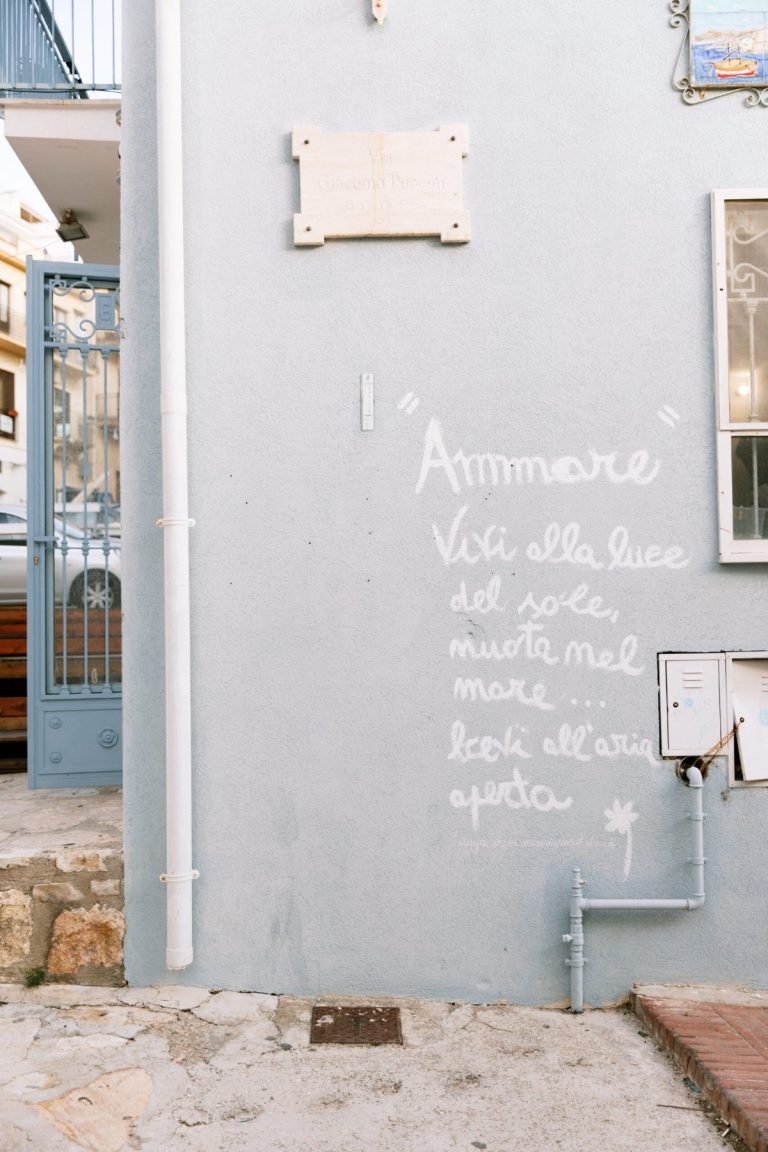 Via
Giacomo Puccini
"Ammare"
Vivi alla luce
del sole,
nuota nel
mare ...
bevi all'aria
aperta
E